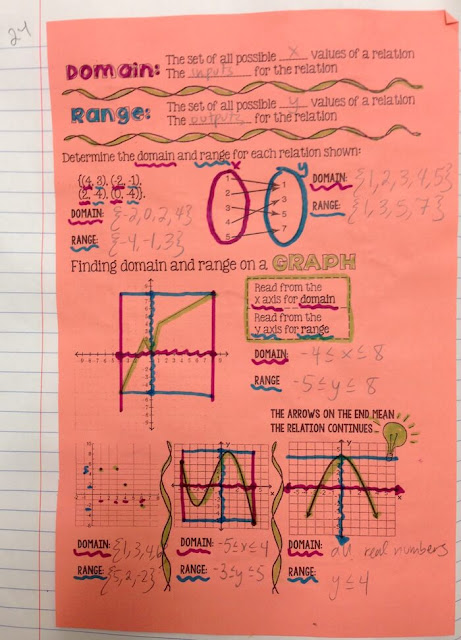 24
Domain: The set of all possible x values of a relation
The inputs for the relation
Range: The set of all possible y values of a relation
The outputs for the relation
Determine the domain and range for each relation shown:
{(4, 3), (-2, -1),
(2, -4), (0, -4)}.
DOMAIN: {-2, 0, 2, 4}
RANGE: {-4, -1, 3}
x y
1
2
3
4
5
1
3
5
7
DOMAIN: {1, 2, 3, 4, 5}
RANGE: {1, 3, 5, 7}
Finding domain and range on a GRAPH
Read from the
x axis for domain
Read from the
y axis for range
DOMAIN: -4 ≤ x ≤ 8
RANGE -5 ≤ y ≤ 8
THE ARROWS ON THE END MEAN
THE RELATION CONTINUES...
DOMAIN: {1, 3, 4, 6
RANGE: {5, 2, -2}
DOMAIN: -5 ≤ x ≤ 4
RANGE: -3 ≤ y ≤ 5
DOMAIN: all real numbers
RANGE: y ≤ 4